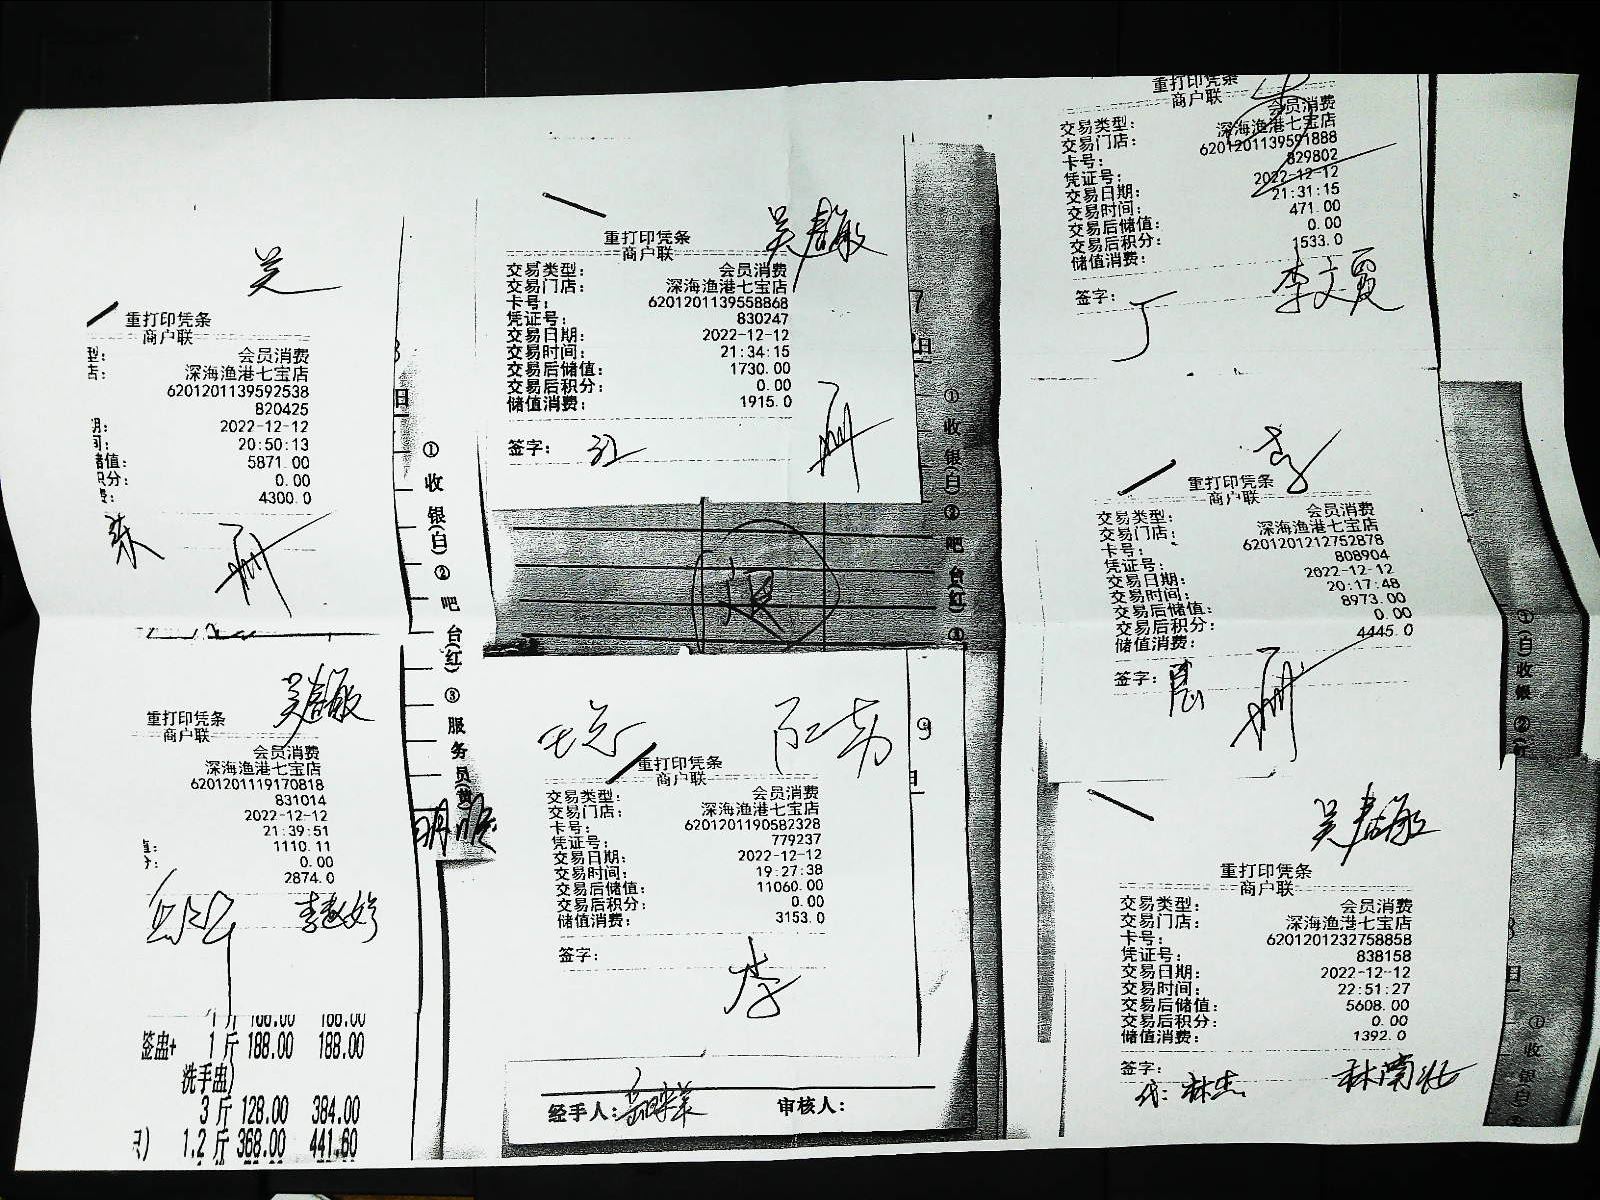 吴
重打印凭条
商户联
型: 会员消费
店: 深海渔港七宝店
6201201139592538
820425
期: 2022-12-12
间: 20:50:13
储值: 5871.00
积分: 0.00
费: 4300.0
朱
吴春敏
重打印凭条
商户联
会员消费
深海渔港七宝店
6201201119170818
831014
2022-12-12
21:39:51
值: 1110.11
分: 0.00
2874.0
1 斤 188.00 188.00
签盅+ 1 斤 188.00 188.00
洗手盅)
3 斤 128.00 384.00
1.2 斤 368.00 441.60
日
①收银(白)②吧台(红)③服务员(黄)
吴春敏
重打印凭条
商户联
交易类型: 会员消费
交易门店: 深海渔港七宝店
卡号: 6201201139558868
凭证号: 830247
交易日期: 2022-12-12
交易时间: 21:34:15
交易后储值: 1730.00
交易后积分: 0.00
储值消费: 1915.0
签字: 江
7
日
①收银(白)②吧台(红)③
重打印凭条
商户联
交易类型: 会员消费
交易门店: 深海渔港七宝店
卡号: 6201201190582328
凭证号: 779237
交易日期: 2022-12-12
交易时间: 19:27:38
交易后储值: 11060.00
交易后积分: 0.00
储值消费: 3153.0
签字:
李
9
日
经手人:
审核人:
重打印凭条
商户联
交易类型: 会员消费
交易门店: 深海渔港七宝店
卡号: 6201201139591888
凭证号: 829802
交易日期: 2022-12-12
交易时间: 21:31:15
交易后储值: 471.00
交易后积分: 0.00
储值消费: 1533.0
签字: 丁
李文夏
李
重打印凭条
商户联
交易类型: 会员消费
交易门店: 深海渔港七宝店
卡号: 6201201212752878
凭证号: 808904
交易日期: 2022-12-12
交易时间: 20:17:48
交易后储值: 8973.00
交易后积分: 0.00
储值消费: 4445.0
签字: 周
吴春敏
重打印凭条
商户联
交易类型: 会员消费
交易门店: 深海渔港七宝店
卡号: 6201201232758858
凭证号: 838158
交易日期: 2022-12-12
交易时间: 22:51:27
交易后储值: 5608.00
交易后积分: 0.00
储值消费: 1392.0
签字:
代: 林杰
日
①收银(白)